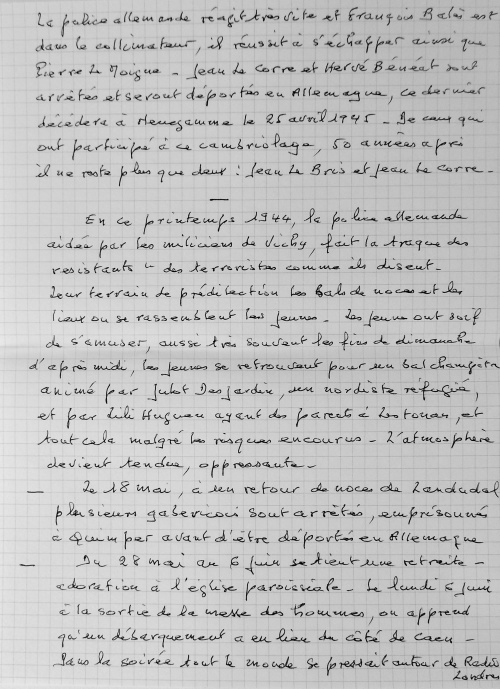 La police allemande réagit très vite et François Balès est
dans le collimateur, il réussit à s'échapper ainsi que
Pierre Le Moigne - Jean Le Corre et Hervé Bénéat sont
arrêtés et seront déportés en Allemagne, ce dernier
décédera à Neuegamme le 25 avril 1945 - De ceux qui
ont participé à ce cambriolage, 50 années après
il ne reste plus que deux : Jean Le Bris et Jean Le Corre -
En ce printemps 1944, la police allemande
aidée par les miliciens de Vichy, fait la traque des
resistants " des terroristes comme ils disent -
Leur terrain de prédilection les bals de noces et les
lieux ou se rassemblent les jeunes - Les jeunes ont soif
de s'amuser, aussi très souvent les fins de dimanche
d'après midi, les jeunes se retrouvent pour un bal champêtre
animé par Julot Desjardin, un nordiste réfugié,
et par Lili Huguen ayant des parents à Lestonan, et
tout cela malgré les risques encourus - L'atmosphère
devient tendue, oppressante -
— Le 18 mai, à un retour de noces de Landudal
plusieurs gabericois sont arrêtés, emprésonnés
à Quimper avant d'être déportés en Allemagne
— Du 28 mai au 6 juin se tient une retraite -
adoration à l'église paroissiale - Le lundi 6 juin
à la sortie de la messe des hommes, on apprend
qu'un débarquement a eu lieu du côté de Caen -
Dans la soirée tout le monde se pressait autour de Radio
Londres